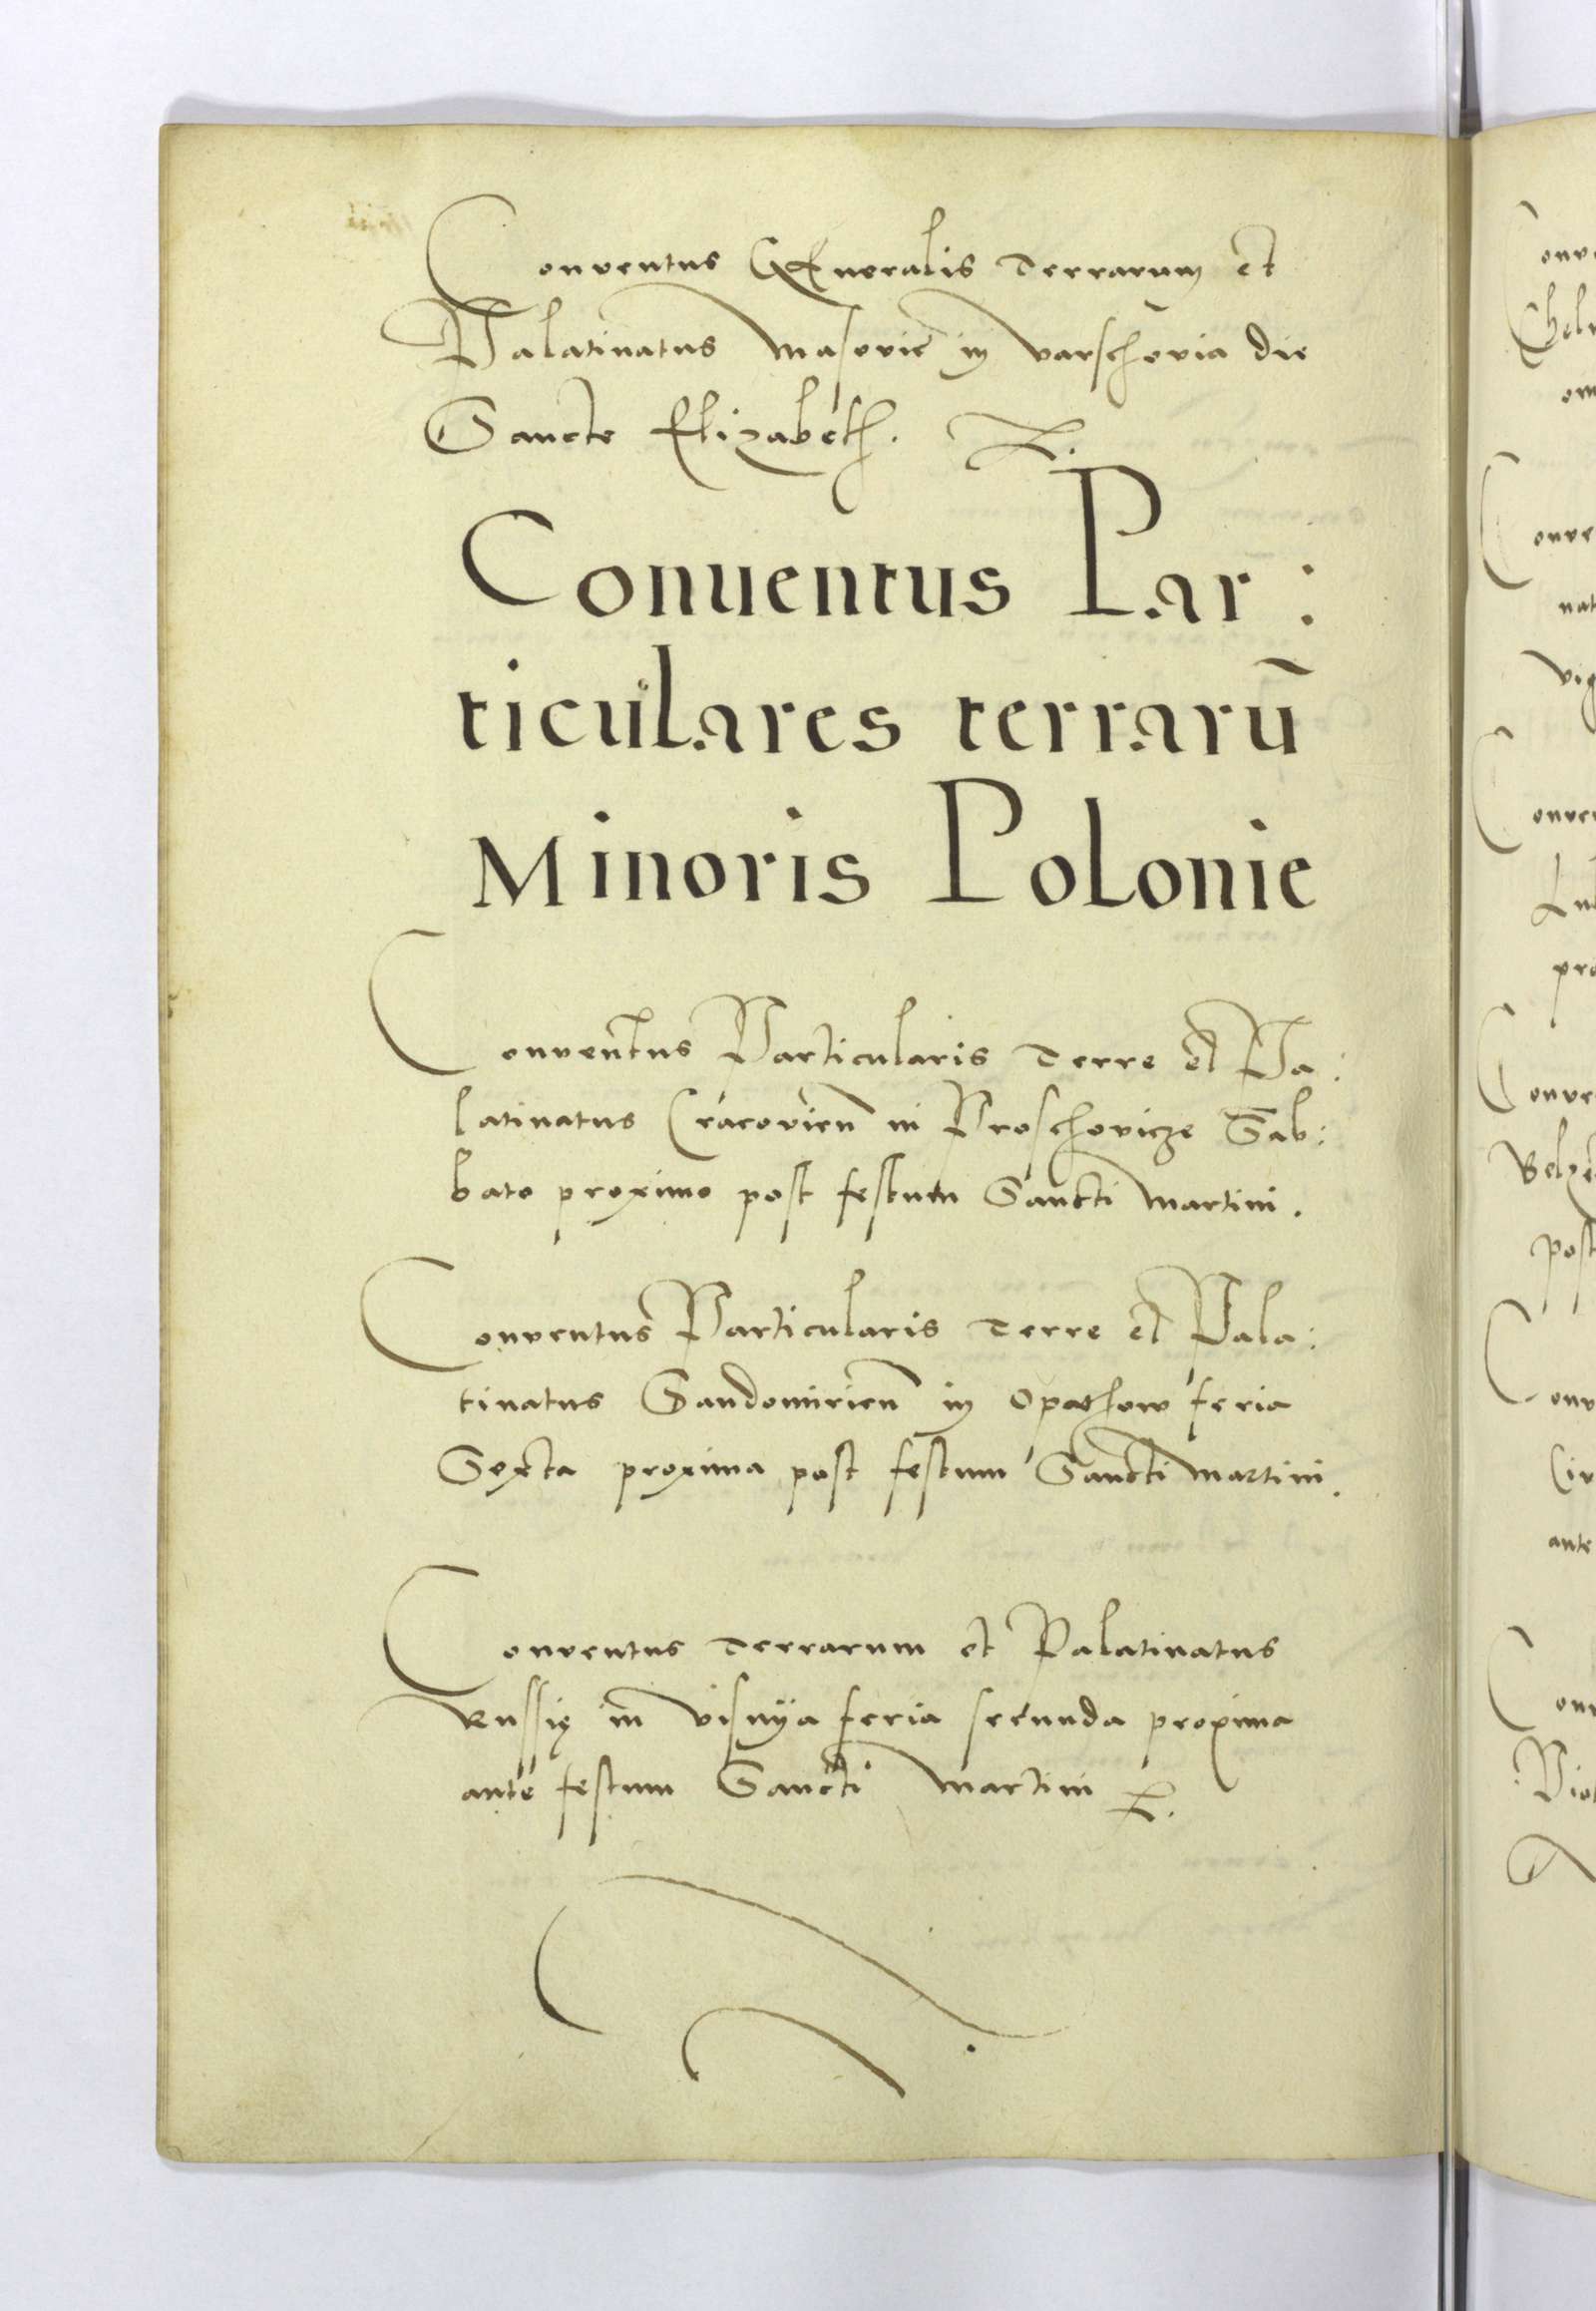 Conventus Generalis Terrarum et
Palatinatus Masovie in Varschovia die
Sancte Elizabeth.
Conventus Par:
ticulares terrarū
Minoris Polonie
Conventus Particularis Terre et Pa:
latinatus Cracovien̄ in Proschovicze Sab:
bato proximo post festum Sancti Martini.
Conventus Particularis Terre et Pala:
tinatus Sandomirien̄ in Opathow feria
Sexta proxima post festum Sancti Martini.
Conventus Terrarum et Palatinatus
Russię in Visnya feria secunda proxima
ante festum Sancti Martini